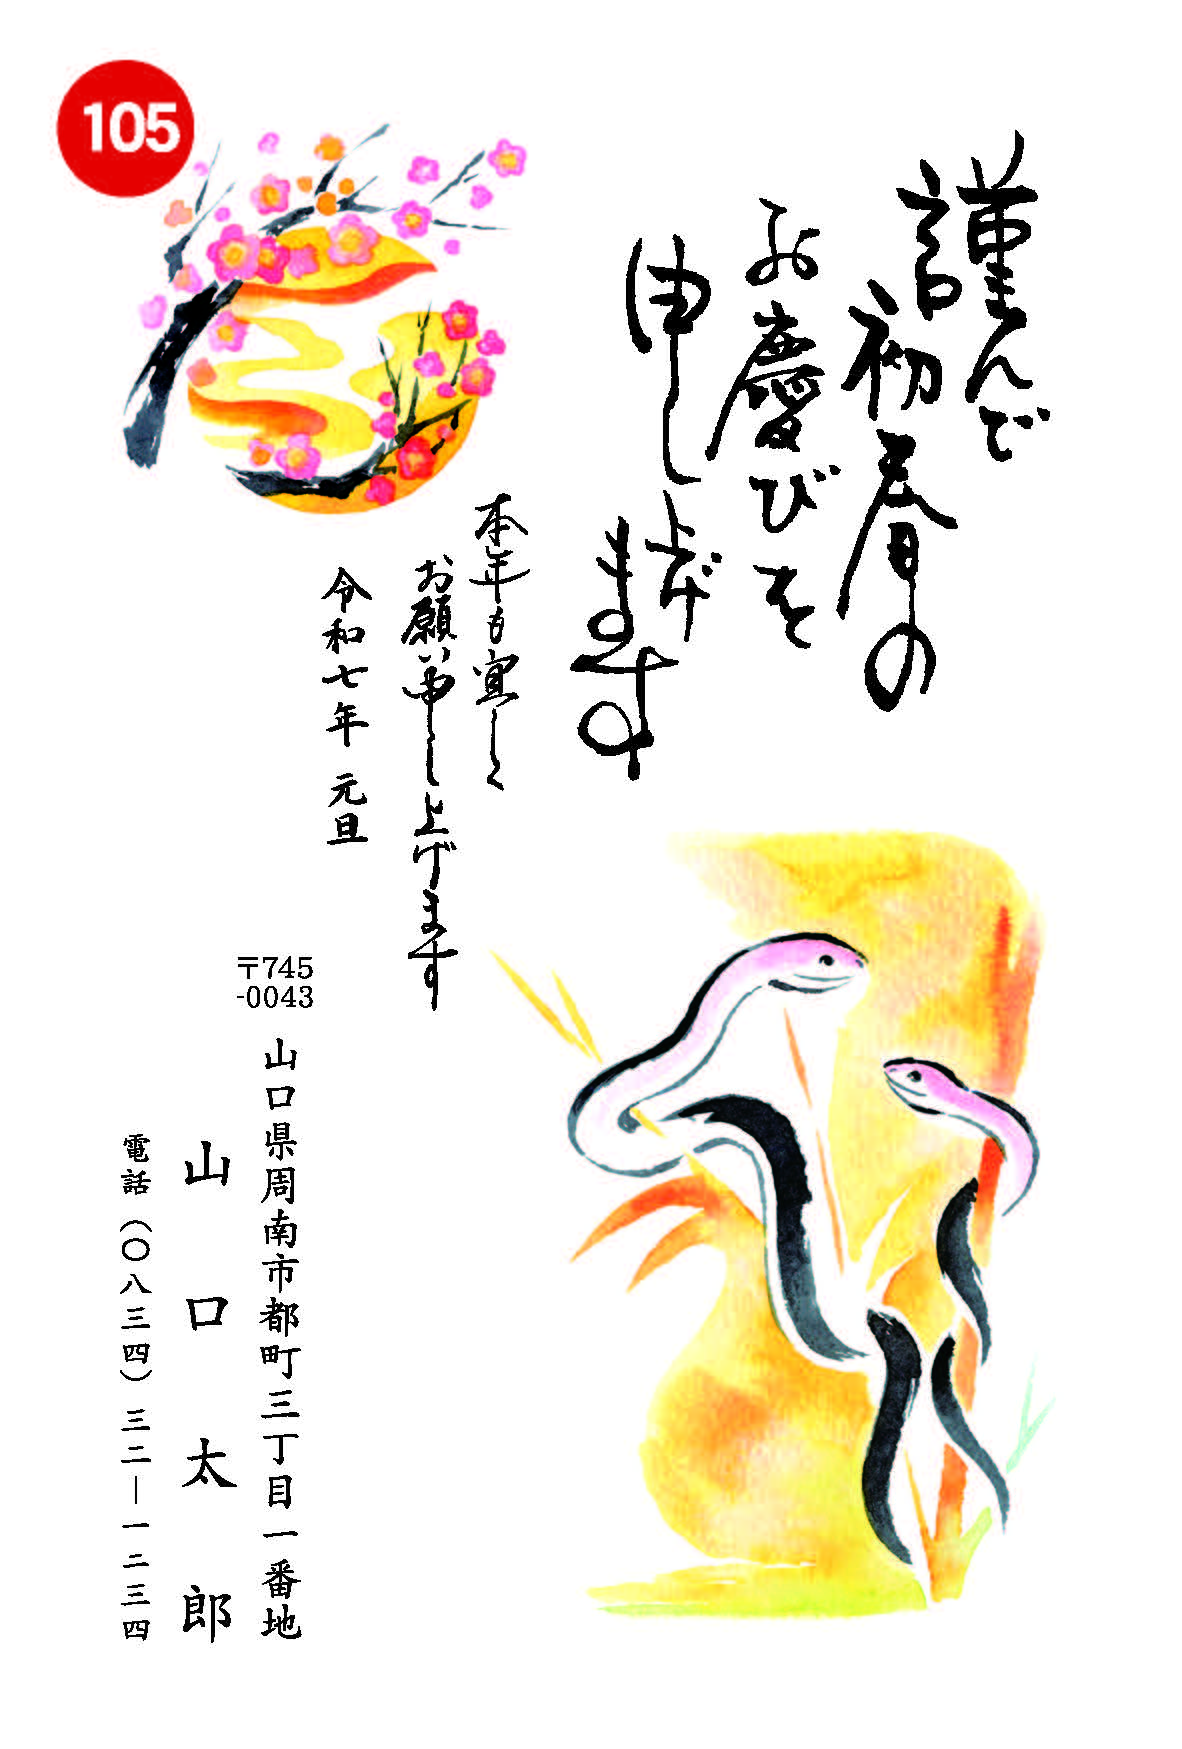 105
謹んで
初春の
お慶びを
申し上げます
本年も宜しく
お願い申し上げます
令和七年 元旦
〒745
-0043
山口県周南市都町三丁目一番地
山口太郎
電話(〇八三四)三二―一二三四